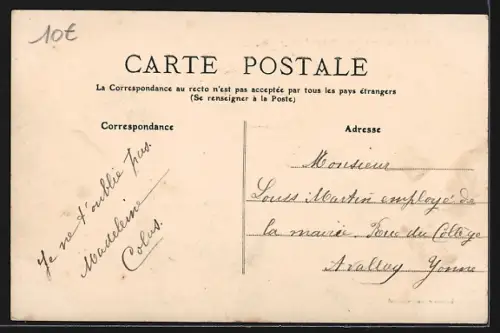 10€
CARTE POSTALE
La Correspondance au recto n'est pas acceptée par tous les pays étrangers
(Se renseigner à la Poste)
Correspondance
Adresse
Je ne t'oublie pas.
Madeleine
Colas.
Monsieur
Louis Martin employé de
la mairie. Rue du Collège
Avallon Yonne